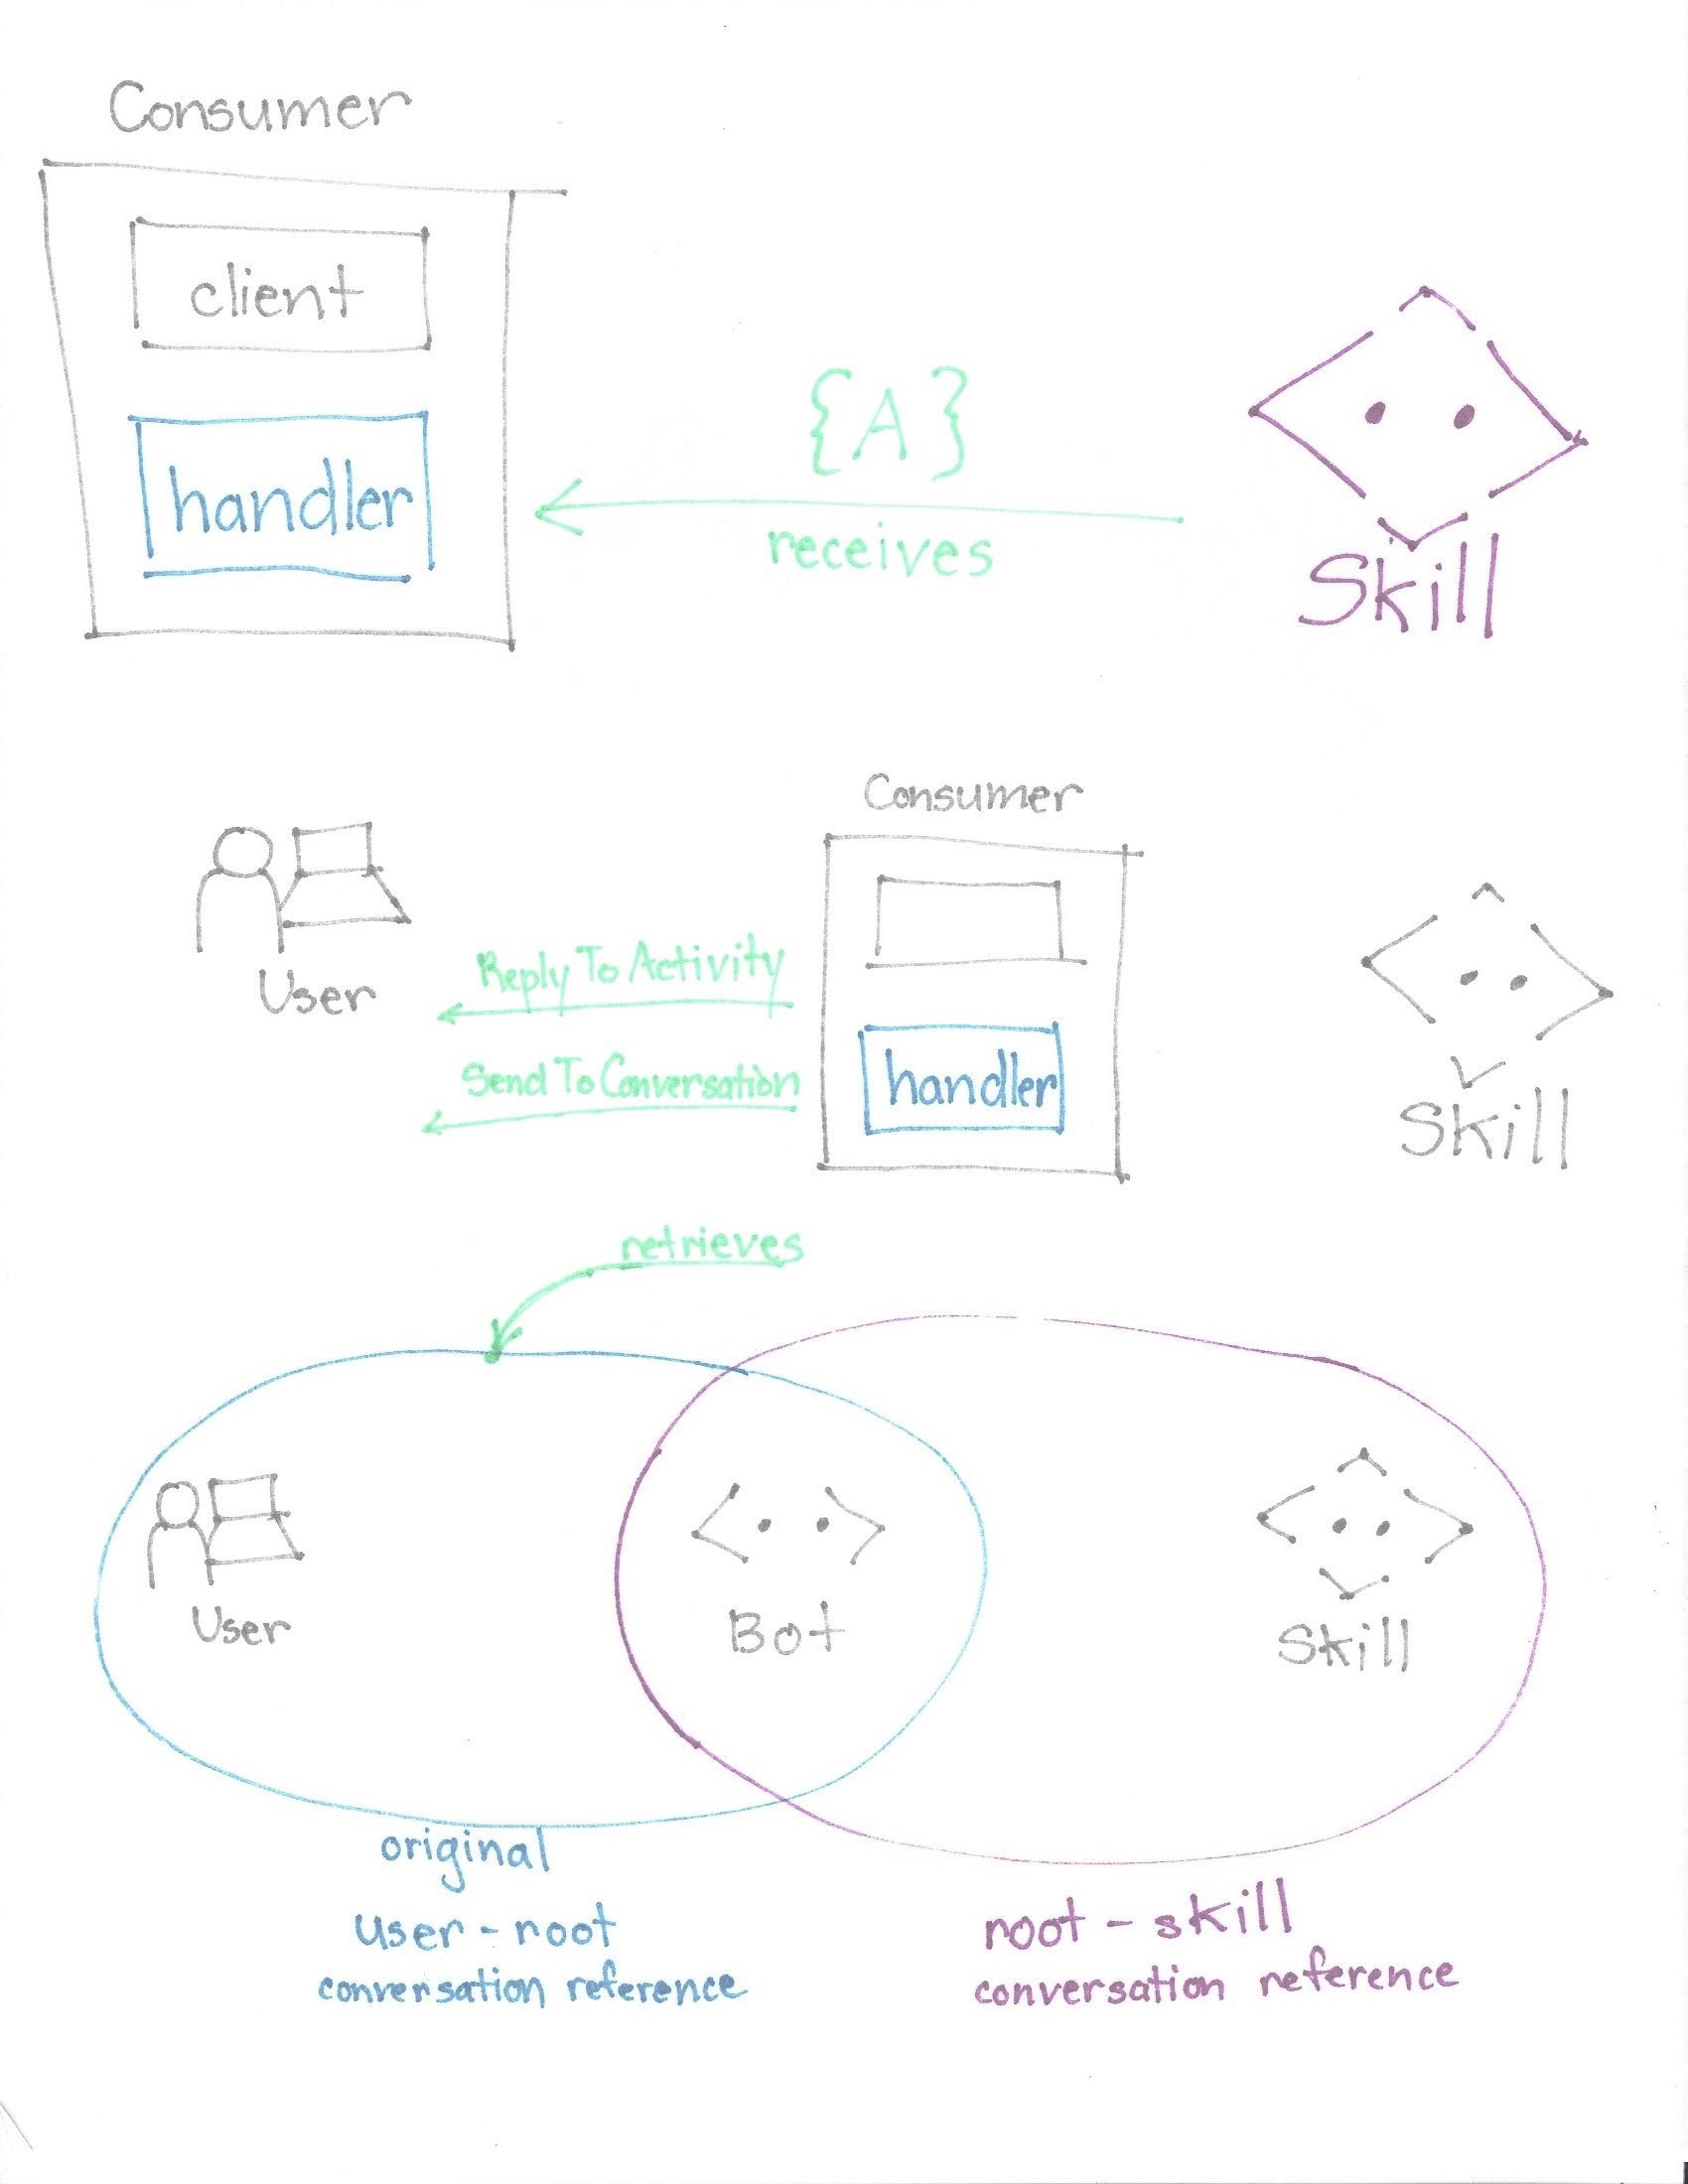 Consumer
client
handler
{A}
receives
Skill
Consumer
User
Reply To Activity
Send To Conversation
handler
Skill
retrieves
User
Bot
Skill
original
user - root
conversation reference
root - skill
conversation reference